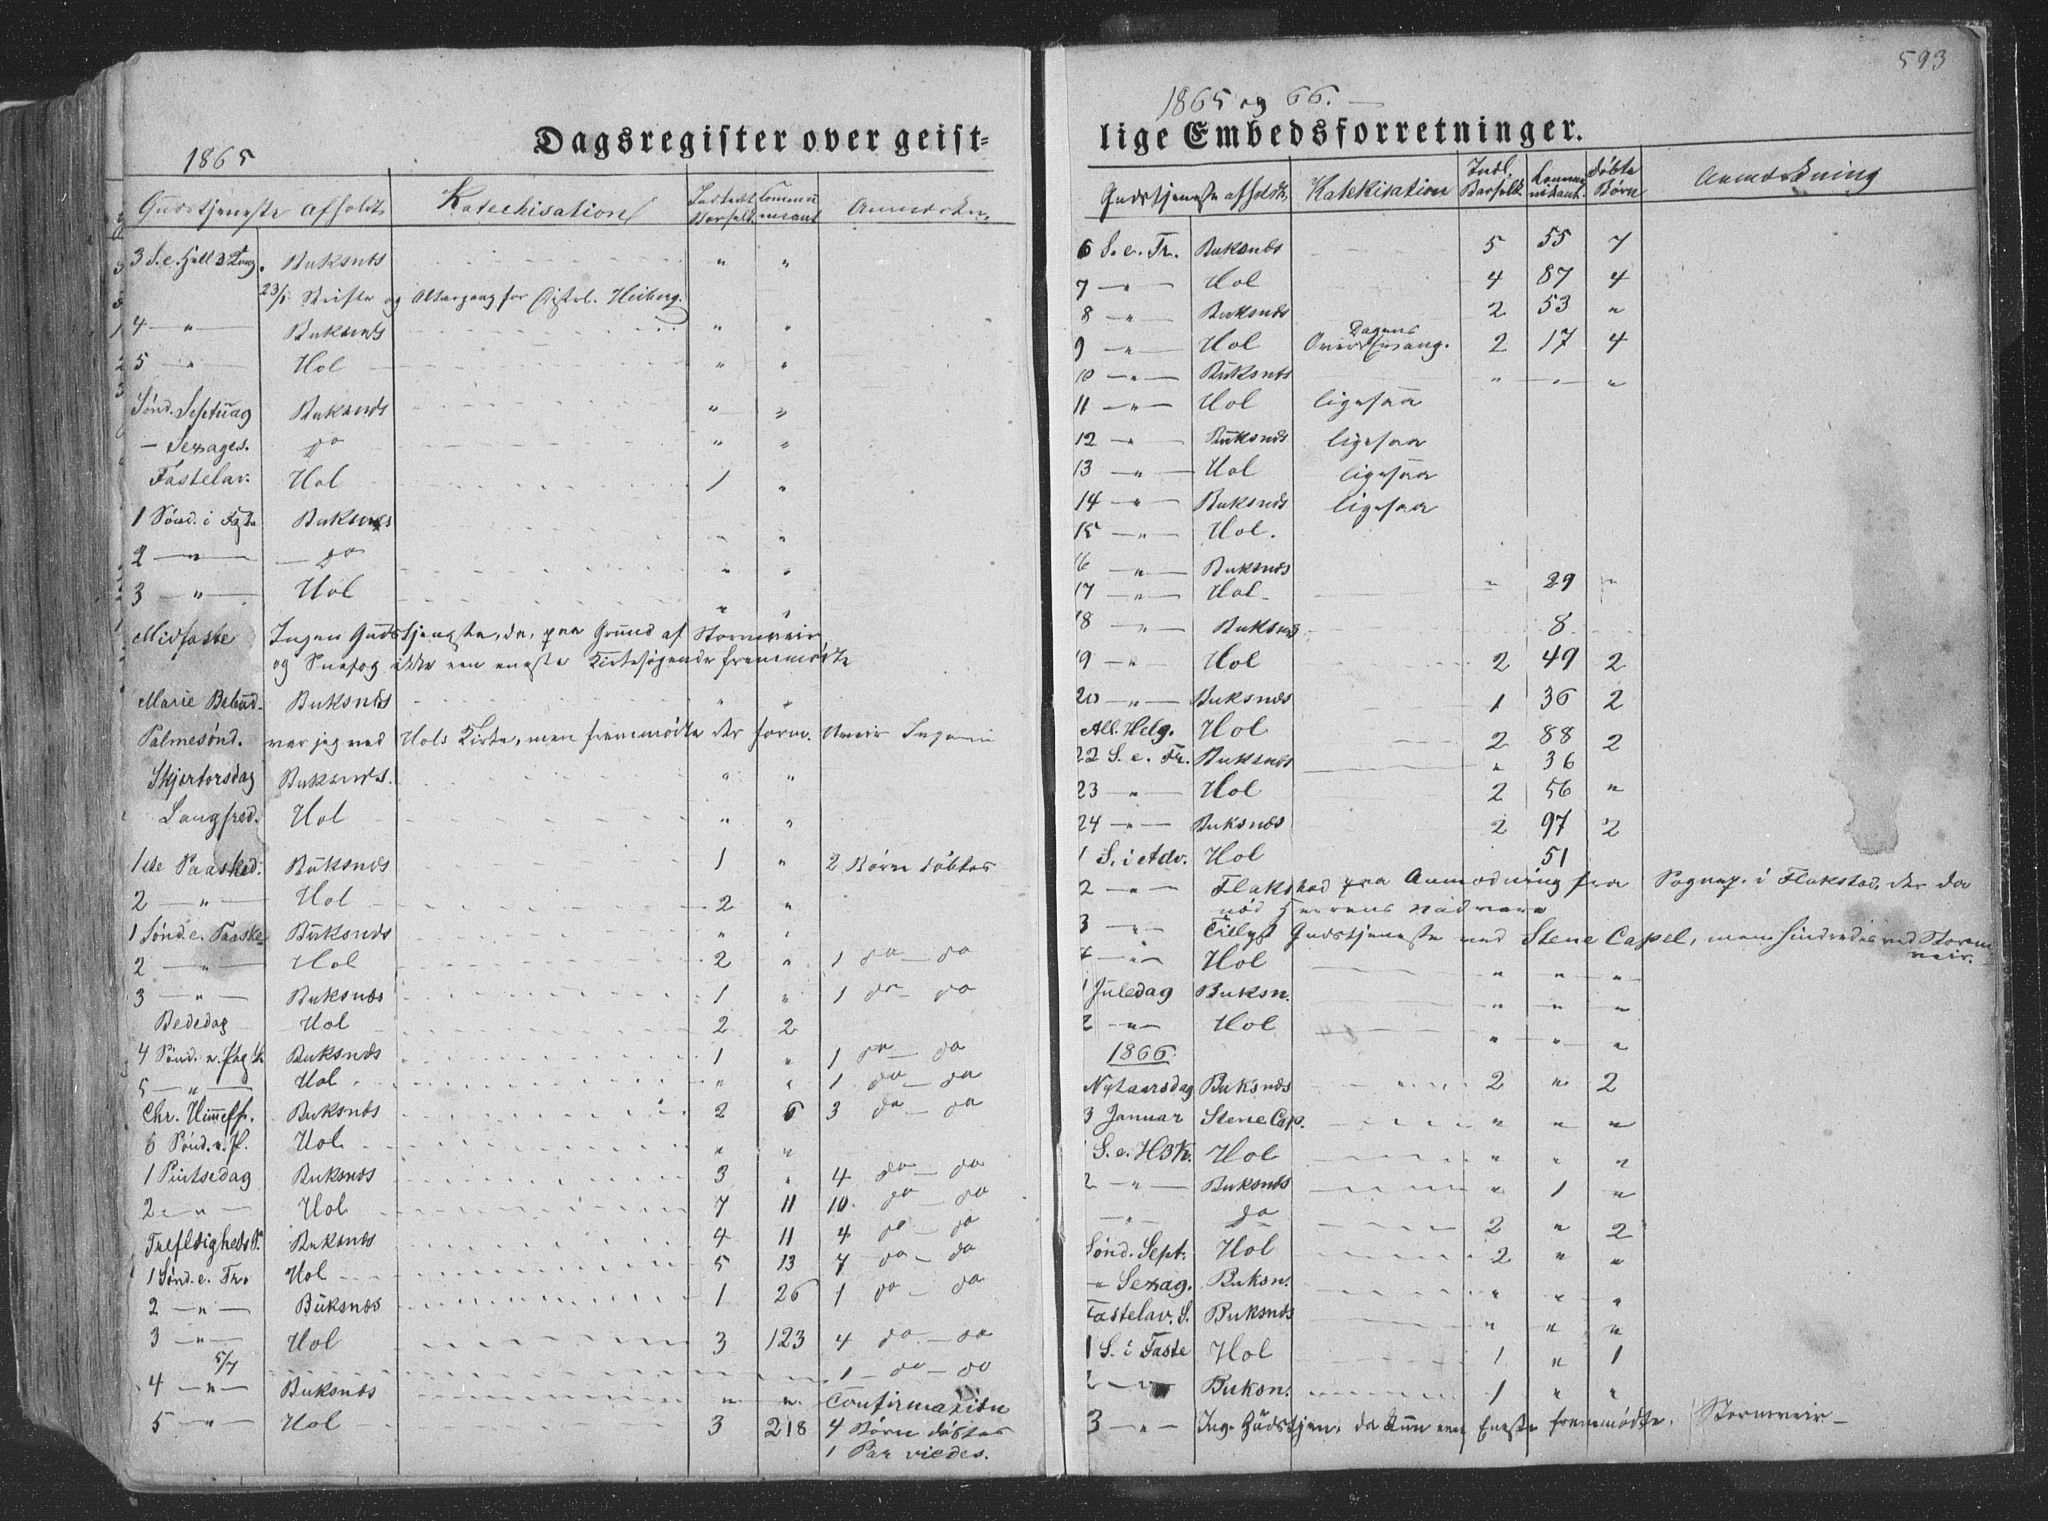 593
1865
Dagsregister over geist-
Gudstjeneste afholdt
Katechisation
Commu
nicant
3 S. e. Hell 3 Kong. Buksnæs " "
23/1 Skrifte og Altergang for Heiberg.
4 " Buksnæs " "
5 " Hol " "
Sønd. Septuag Buksnæs " "
- Sexages. do " "
Fastelav. Hol 1 "
1 Sønd. i Faste Buksnæs
2 " do " "
3 " Hol " "
Midfaste Ingen Gudstjeneste, da, paa Grund af Stormveir
og Snefog ikke een eneste Kirkesøgende fremmødte
Marie Bebud. Buksnæs " "
Palmesønd. var jeg ved Hols Kirke, men fremmødte der form. Uveir Ingen
Skjertorsdag Buksnæs. " "
Langfred. Hol " "
1ste Paasked. Buksnæs 1 " 2 Børn døbtes
2 " Hol 2 "
1 Sønd. e. Paaske Buksnæs " "
2 " Hol 2 " 1 do do
3 " Buksnæs 1 " 1 do do
Bededag Hol 2 2
4 Sønd. Buksnæs 1 " 1 do do
5 " Hol " " 1 do do
Chr. Himmelf. Buksnæs 2 6 3 do do
6 Sønd. Hol " "
1 Pintsedag Buksnæs 3 " 4 do do
2 " Hol 7 11 10 do do
Trefoldigheds S. Buksnæs 4 11 4 do do
1 Sønd. e. Tr. Hol 5 13 7 do do
2 " Buksnæs 1 26 1 do do
3 " Hol 3 123 4 do do
5/7 1 do do
4 " Buksnæs " " Confirmation
5 " Hol 3 218 4 Børn døbtes
1 Par viedes.
1865 og 66.
lige Embedsforretninger.
Gudstjeneste afholdt Katekisation Indl. Barselk. Commu nikant. Døbte Børn Anmærkning
6 S. e. Tr. Buksnæs 5 55 7
7 " Hol 4 87 4
8 " Buksnæs 2 53 "
9 " Hol Over Dagens Evang. 2 17 4
10 " Buksnæs " " "
11 " Hol ligesaa
12 " Buksnæs ligesaa
13 " Hol ligesaa
14 " Buksnæs ligesaa
15 " Hol.
16 " Buksnæs
17 " Hol " 29 "
18 " Buksnæs 8
19 " Hol 2 49 2
20 " Buksnæs 1 36 2
All. Helg. Hol 2 88 2
22 S. e. Tr. Buksnæs " 36
23 " Hol 2 56 "
24 " Buksnæs 2 97 2
1 S. i Adv. Hol 51
2 " Flakstad paa Anmodning fra Sognep. i Flakstad, der da
nød Herrens Nadvere
3 " Tillyst Gudstjeneste ved Stene Capel, men hindredes ved Storm
veir.
4 " Hol " " "
1 Juledag Buksn. " " "
2 " Hol " " "
1866.
Nytaarsdag Buksnæs 2 " 2
3 Januar Stene Cap. " " "
1 S. e. H3K. Hol " " "
2 " Buksnæs " 1 "
" do 2 " 2
Sønd. Sept. Hol 2 " "
" Sexag. Buksn. " " "
Fastelav. S. Buksnæs " " "
1 S. i Faste Hol 1 " 1
2 " Buksn. 1 " "
3 " Ing. Gudstjen. da kun een Eneste fremmødte. Stormveir